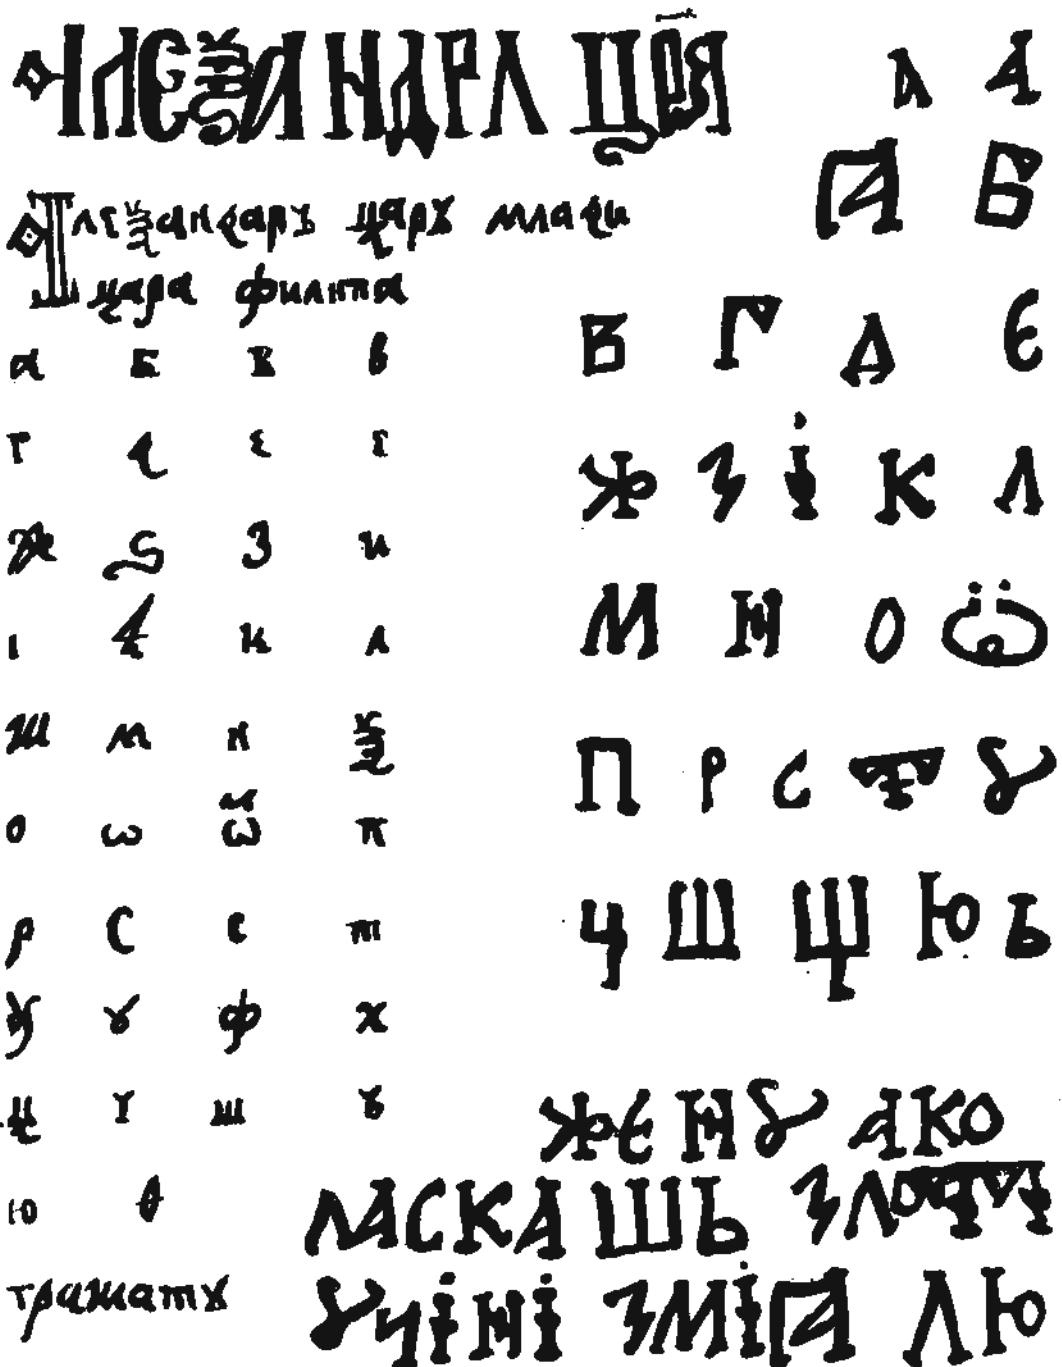 АЛЕѮАНДРА ЦРЯ
Алеѯандаръ царꙋ млади
цара филипа
а б в в
г д є
ж ѕ з и
і ѧ к л
м н ѯ
о ѡ ѿ п
р с с т
у ꙋ ф х
ц ч ш ъ
ю ѳ
А А
Ꙗ Б
В Г Д Є
Ж З І К Л
М Н О Ѻ
П Р С Т Ꙋ
Ч Ш Щ Ю Ь
ЖЄНꙊ АКО
ЛАСКАШЬ
ꙊЧІНІ ЗМІꙖ ЛЮ